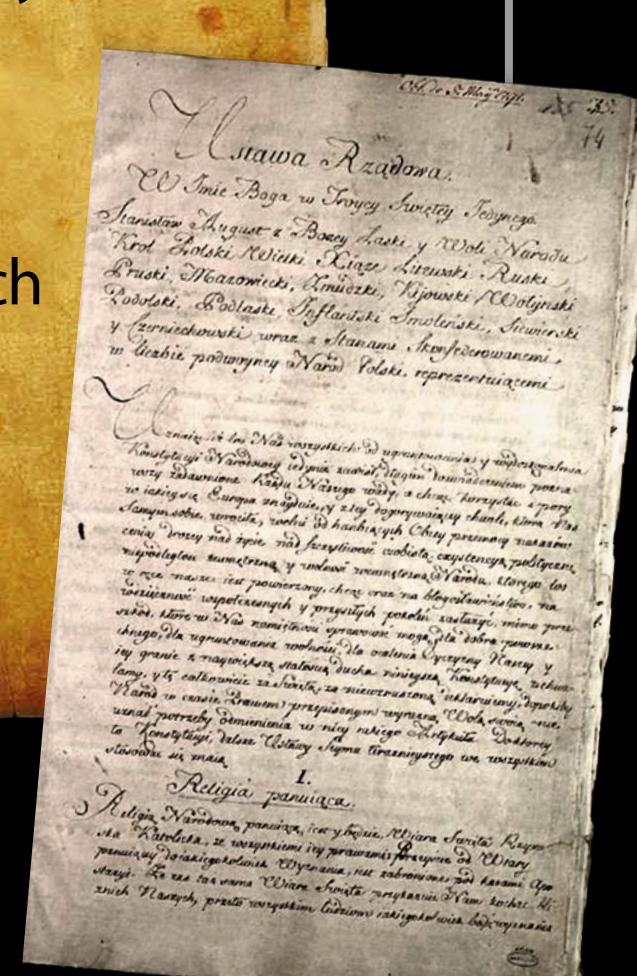 ch
Obl. de 5. Maÿ 1791.
74
Ustawa Rządowa.
W Imie Boga w Troycy Swiętey Jedynego
Stanisław August z Bozey Łaski y Woli Narodu
Krol Polski Wielki Xiąze Litewski Ruski
Pruski, Mazowiecki, Zmudzki, Kijowski Wołyński
Podolski, Podlaski, Inflantski Smoleński, Siewierski
y Czerniechowski wraz z Stanami Skonfederowanemi
w liczbie podwoyney Narod Polski reprezentuiącemi
Uznaiąc, iż los Nas wszystkich od ugruntowania y wydoskonalenia
Konstytucyi Narodowey iedynie zawisł, długim doswiadczeniem pozna-
wszy zadawnione Rządu Naszego wady, a chcąc korzystac z pory
w iakiey się Europa znayduie, y z tey dogorywaiącey chwili, ktora Nas
Samym sobie wrociła, wolni od hanbiących Obcey przemocy nakazow
ceniąc drozey nad życie, nad szczęsliwosc osobistą exystencyą polityczną
niepodległosc zewnętrzną y wolnosc wewnętrzną Narodu, ktorego los
w ręce nasze iest powierzony, chcąc oraz na błogosławieństwo, na
wdzięcznosc wspołczesnych y przyszłych pokoleń zasłużyc, mimo prze-
szkod, ktore w Nas namiętnosci sprawowac mogą, dla dobra powsze-
chnego, dla ugruntowania wolnosci, dla ocalenia Oyczyzny Naszey y
iey granic z naywiększą stałoscią ducha ninieyszą Konstytucyę uchwa-
lamy, y tę całkowicie za Swiętą, za niewzruszoną deklaruiemy, dopokiby
Narod w czasie Prawem przepisanym wyrazną Wolą swoią nie
uznał potrzeby odmienienia w niey iakiego Artykułu. Do ktorey
to Konstytucyi, dalsze Ustawy Seymu teraznieyszego we wszystkim
stosowac się maią
I.
Religia panuiąca.
Religią Narodową panuiącą iest y będzie, Wiara Swięta Rzym-
ska Katolicka, ze wszystkiemi iey prawami. Przeyscie od Wiary
panuiącey do iakiegokolwiek Wyznania, iest zabronione pod karami Apo-
stazyi. Ze zas taż sama Wiara Swięta przykazuie Nam kochac bli-
znich Naszych, przeto wszystkim ludziom iakiegokolwiek bądź wyznania